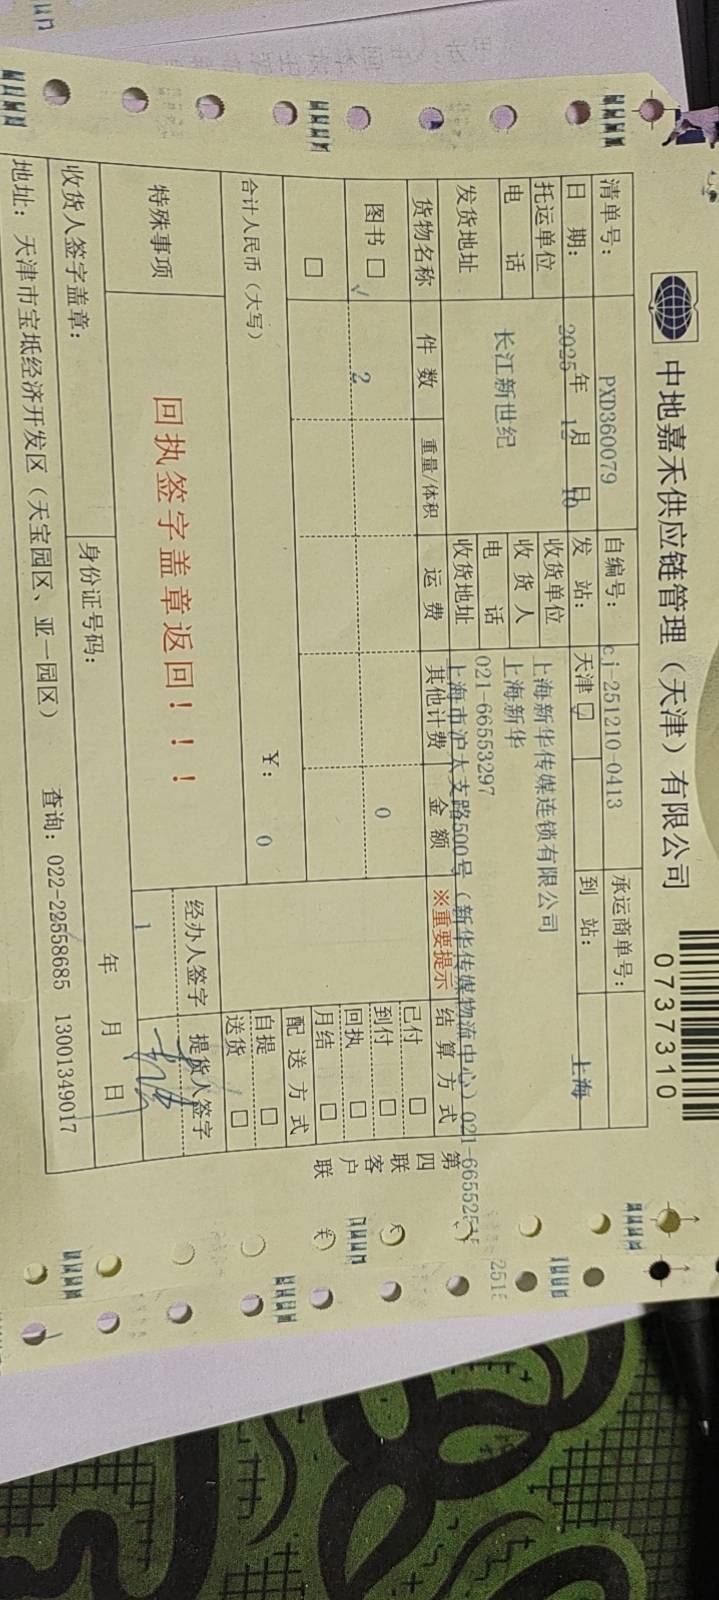 中地嘉禾供应链管理（天津）有限公司
0737310
清单号： PXD360079 自编号： cj-251210-0413 承运商单号：
日 期： 2025年 12月 10日 发 站： 天津 到 站： 上海
托运单位 收货单位 上海新华传媒连锁有限公司
电 话 长江新世纪 收 货 人 上海新华
电 话 021-66553297
发货地址 收货地址 上海市沪太支路500号（新华传媒物流中心）021-6655251
货物名称 件 数 重量/体积 运 费 其他计费 金 额 ※重要提示 结 算 方 式
图书 □ √ 2 0 已付 □
到付 □
回执 □
□ 月结 □
合计人民币（大写） ¥： 0 配 送 方 式
自提 □
送货 □
特殊事项 回执签字盖章返回！！！ 经办人签字 提货人签字
1
收货人签字盖章： 身份证号码： 年 月 日
地址：天津市宝坻经济开发区（天宝园区、亚一园区） 查询：022-22558685 13001349017
第四联 客户联
2515